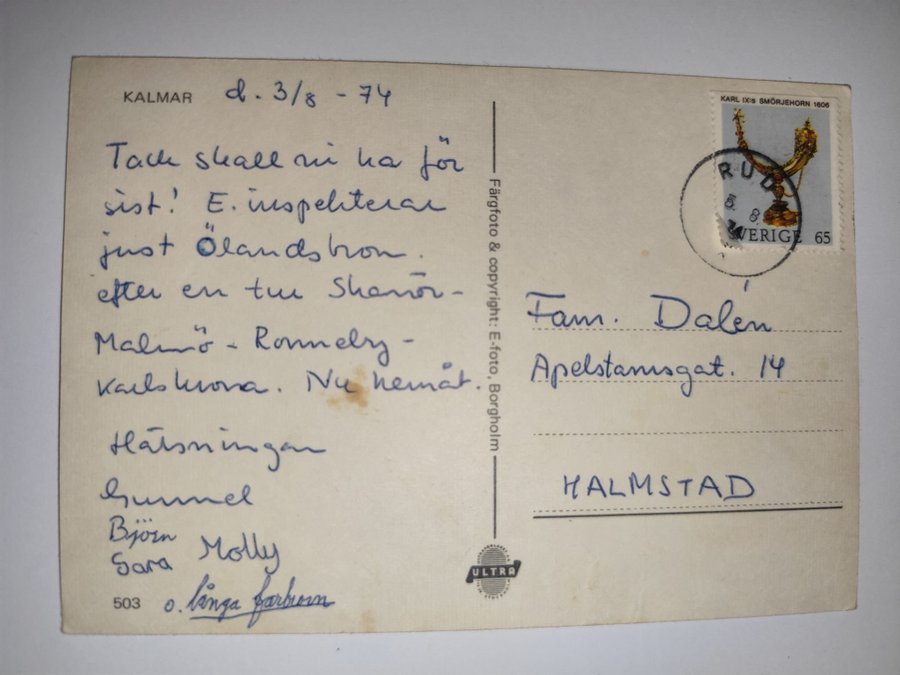 KALMAR d. 3/8 - 74
Tack skall ni ha för
sist! E. inspekterar
just Ölandsbron.
efter en tur Skanör-
Malmö - Ronneby -
Karlskrona. Nu hemåt.
Hälsningar
Gunnel
Björn
Sara Molly
o. långa farbrorn
503
Färgfoto & copyright: E-foto, Borgholm
ULTRA
KARL IX:s SMÖRJEHORN 1606
RUD
5. 8.
SVERIGE 65
Fam. Dalén
Apelstamsgat. 14
HALMSTAD